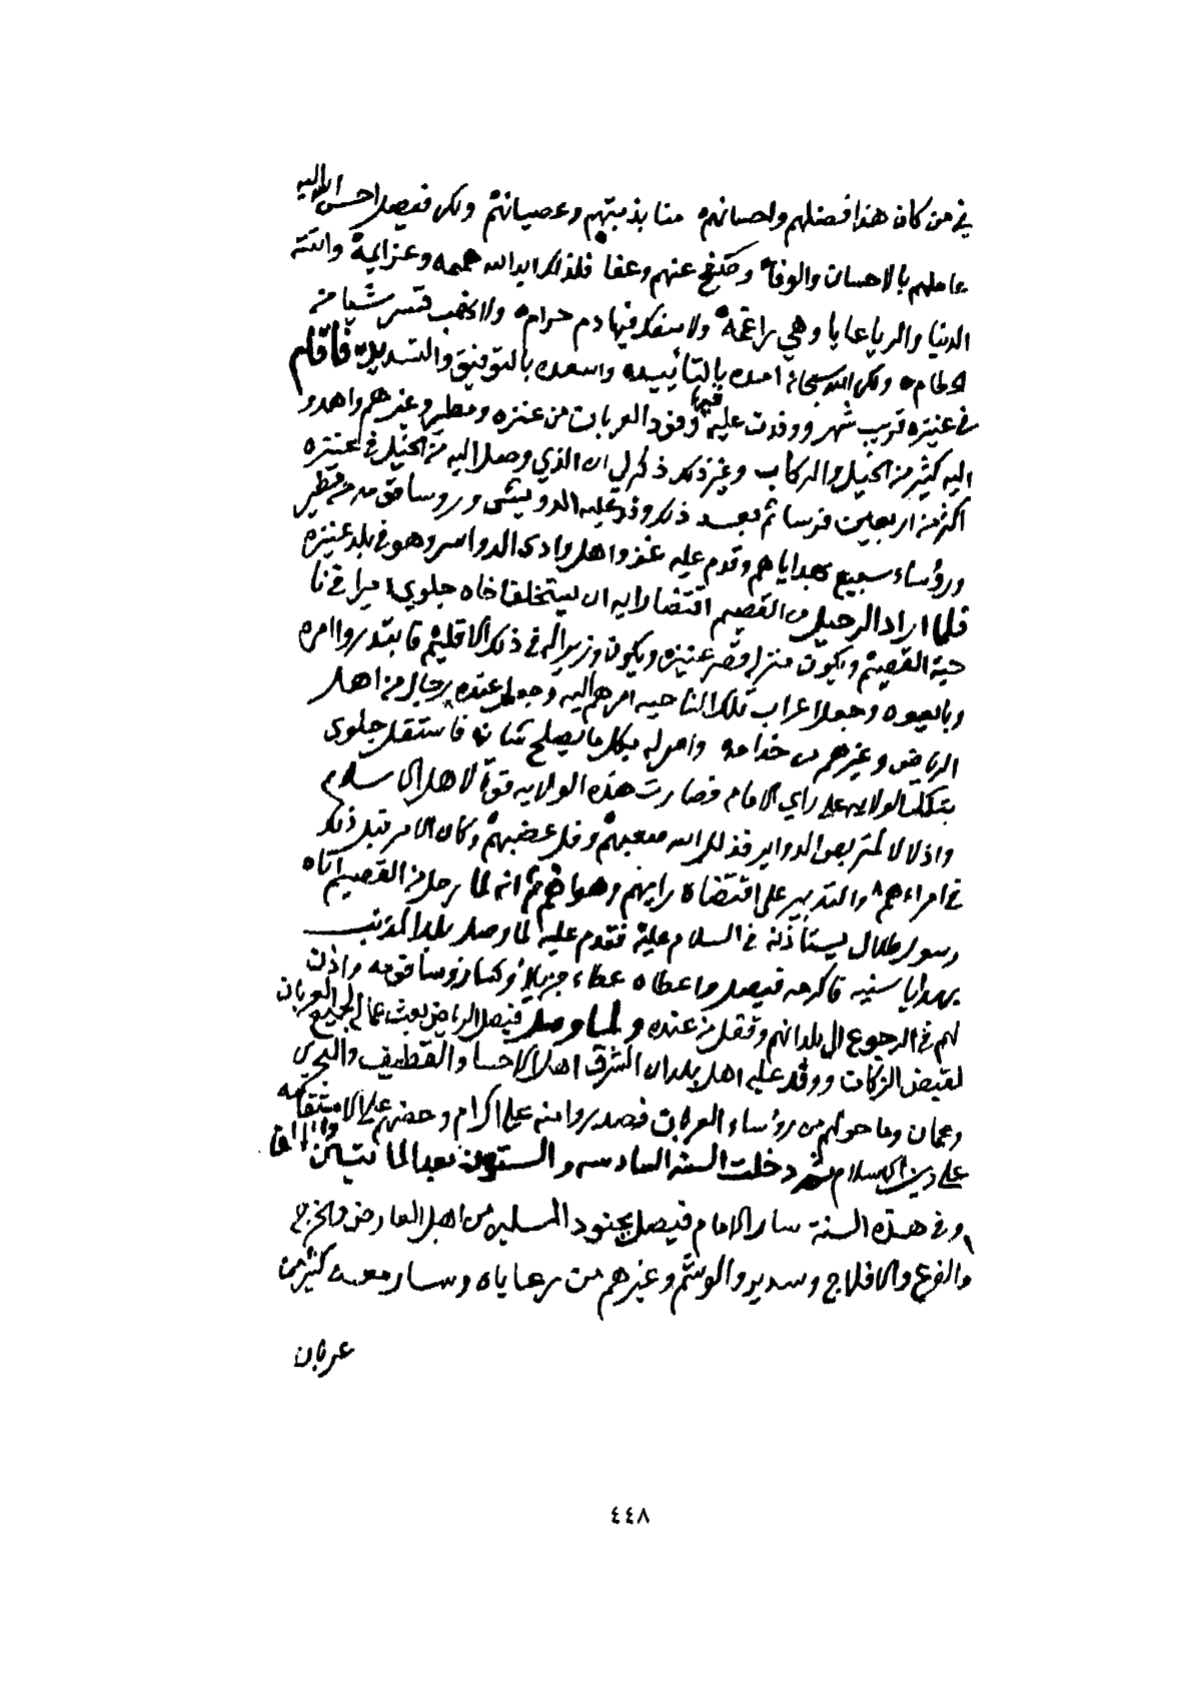 في من كان هذا فضلهم واحسانهم منابذتهم وعصيانهم ولكن فيصل احسن الله اليه
عاملهم بالاحسان والوفا وصفح عنهم وعفا فلذلك ايد الله هممه وعزايمه واتته
الدنيا والرعايا وهي راغمه ولا سفك فيها دم حرام ولا نهب قسر شيا من
الحطام ولكن الله سبحانه امده بالتأييد واسعده بالتوفيق والتسديد فأقام
في عنيزه قريب شهر ووفدت عليه فيها وفود العربان من عنزه ومطير وغيرهم واهدو
اليه كثير من الخيل والركاب وغير ذلك ذكر لي ان الذي وصل اليه من الخيل في عنيزه
اكثر من اربعين فرسا ثم بعد ذلك وفد عليه الدويش وروسا قومه من مطير
ورؤساء سبيع بهداياهم وقدم عليه غزو اهل وادي الدواسر وهو في بلد عنيزه
فلما اراد الرحيل من القصيم اقتضا رايه ان يستخلف اخاه جلوي اميرا في نا
حية القصيم ويكون منزله قصر عنيزه ويكون وزيرا له في ذلك الاقليم فابتدروا امره
وبايعوه وجعل اعراب تلك الناحيه امرهم اليه وجعل عنده رجال من اهل
الرياض وغيرهم من خدامه وامر له بكل ما يصلح شانه فاستقل جلوي
بتلك الولايه على راي الامام فصارت هذه الولايه قوة لاهل الاسلام
واذلالا لمتربص الدواير فذلل الله صعبهم وفل عضبهم وكان الامر قبل ذلك
في امراءهم والتدبير على اقتضاه رايهم وهواهم ثم انه لما رحل من القصيم اتاه
رسول طلال يستأذنه في السلام عليه فقدم عليه لما وصل بلد المذنب
بهدايا سنيه فاكرمه فيصل واعطاه عطاء جزيلا وكسا رؤسا قومه واذن
لهم في الرجوع الى بلدانهم وقفل من عنده ولما وصل فيصل الرياض بعث عماله لجميع العربان
لقبض الزكات ووفد عليه اهل بلدان الشرق اهل الاحسا والقطيف والبحرين
وعمان وما حولهم من رؤساء العربان فصدروا منه على اكرام وحضهم على الاستقامه
على دين الاسلام ثم دخلت السنه السادسه والستون بعد المائتين والالف
وفي هذه السنة سار الامام فيصل بجنود المسلمين من اهل العارض والخرج
والفرع والافلاج وسدير والوشم وغيرهم من رعاياه وسار معه كثير من
عربان
٤٤٨